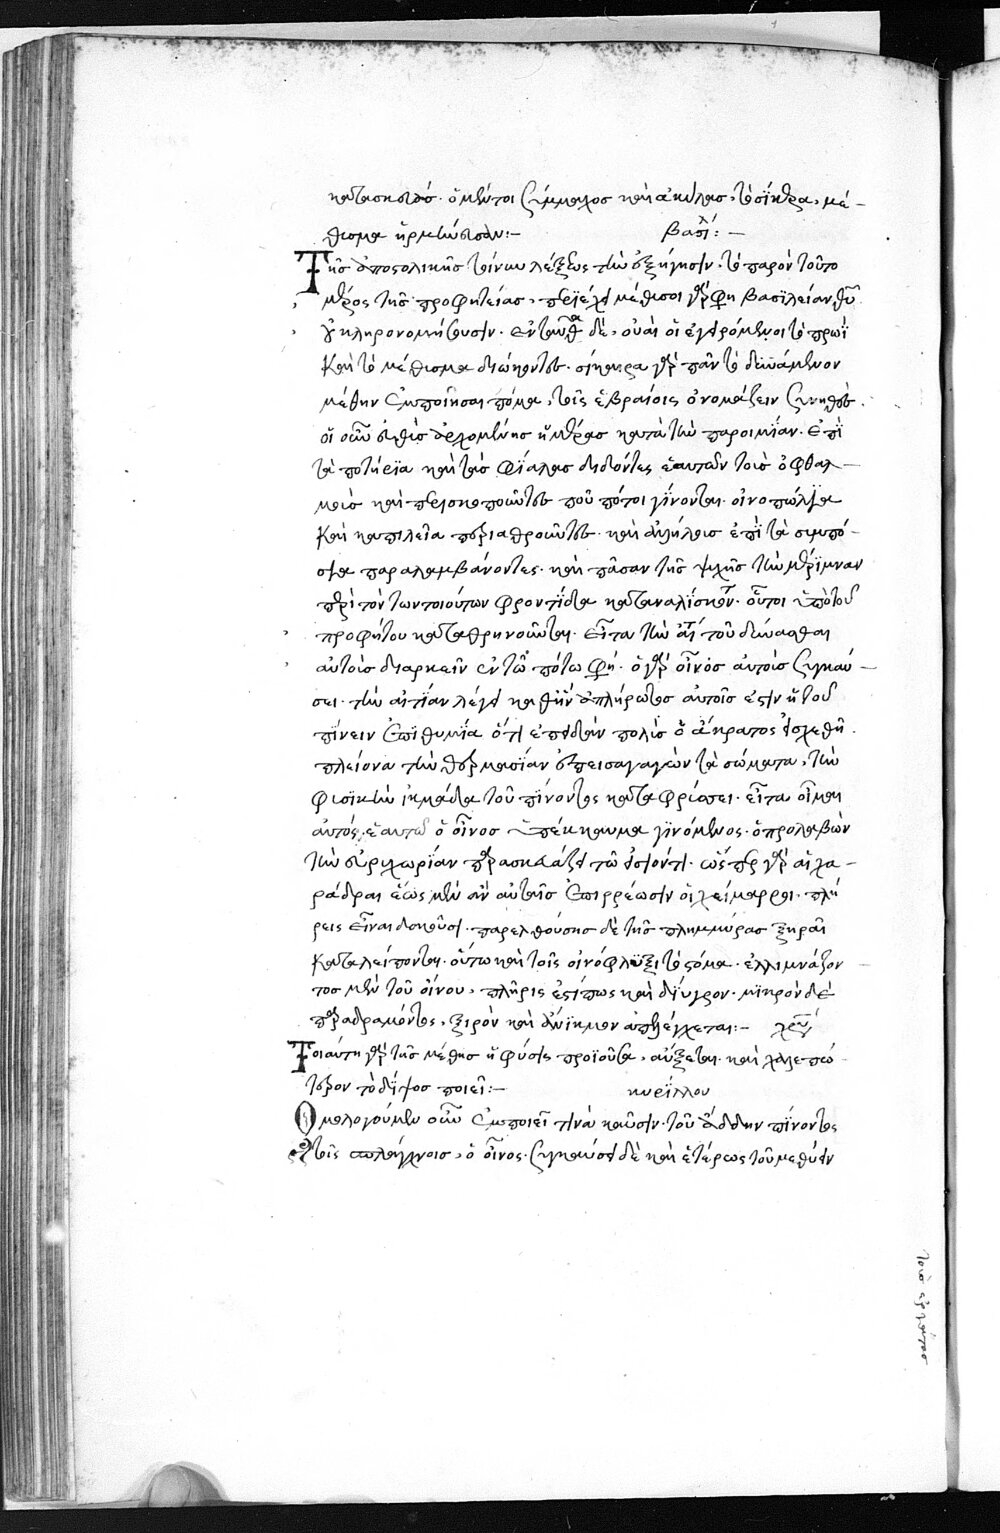 κατασκευάς· ὁ μέντοι Σύμμαχος καὶ ἀκύλας, τὸ σίκερα, μέ-
θυσμα ἡρμήνευσαν:- βασιλ:-
Τῆς ἀποστολικῆς τείνων λέξεως τὴν ἐξήγησιν, τὸ παρὸν τοῦτο
μέρος τῆς προφητείας, περιέχει μέθυσοι γάρ φη βασιλείαν θυ
οὐ κληρονομήσουσιν· ἐνταῦθα δὲ, οὐαὶ οἱ ἐγειρόμενοι τὸ πρωῒ
καὶ τὸ μέθυσμα διώκοντες· σίκερα γὰρ πᾶν τὸ δυνάμενον
μέθην ἐμποιῆσαι πόμα, τοῖς ἑβραίοις ὀνομάζειν σύνηθες.
οἱ οὖν εὐθὺς ἀρχομένης ἡμέρας κατὰ τὴν παροιμίαν· ἐπὶ
τὰ ποτήρια καὶ τὰς φιάλας διδόντες ἑαυτῶν τοὺς ὀφθαλ-
μοὺς καὶ περισκοποῦντες ποῦ πότοι γίνονται· οἰνοπώλια
καὶ καπηλεῖα περιαθροῦντες· καὶ ἀλλήλους ἐπὶ τὰ συμπό-
σια παραλαμβάνοντες· καὶ πᾶσαν τῆς ψυχῆς τὴν μέριμναν
περὶ τὸν τῶν τοιούτων φροντίδα καταναλίσκον· οὗτοι ὑπὸ τοῦ
προφήτου καταθρηνοῦνται· εἶτα τὴν αἰτ τοῦ δύνασθαι
αὐτοὺς διαρκεῖν ἐν τῶ πότω φη· ὁ γὰρ οἶνος αὐτοὺς συγκαύ-
σει· τὴν αἰτίαν λέγει καθ' ἣν ἀπλήρωτος αὐτοῖς ἐστιν ἡ τοῦ
πίνειν ἐπιθυμία ὅτι ἐπειδὰν πολὺς ὁ ἄκρατος εἰσχεθῆ.
πλείονα τὴν θερμασίαν ἐπεισαγαγὼν τὰ σώματα, τὴν
φυσικὴν ἰκμάδα τοῦ πίνοντος καταφρύσσει· εἶτα οἶμαι
αὐτός ἑαυτῶ ὁ οἶνος ὑπέκκαυμα γινόμενος· ὁ προλαβὼν
τὴν εὐρυχωρίαν παρασκευάζει τῶ εἰσιόντι· ὥσπερ γὰρ αἱ χα-
ράδραι ἕως μὲν ἂν αὐταῖς ἐπιρρέωσιν οἱ χείμαρροι· πλή
ρεις εἶναι δοκοῦσι· παρελθούσης δὲ τῆς πλημμύρας ξηραὶ
καταλείπονται· οὕτω καὶ τοῖς οἰνόφλυξι τὸ στόμα· ἐλλιμνάζον-
τος μὲν τοῦ οἴνου, πλῆρες ἐστί πως καὶ δίυγρον· μικρὸν δὲ
παραδραμόντος, ξηρὸν καὶ ἄνικμον ἀπελέγχεται:-
Τοιαύτη γὰρ τῆς μέθης ἡ φύσις προϊοῦσα, αὔξεται· καὶ χαλεπώ-
τερον τὸ δίψος ποιεῖ:- κυρίλλου
Ομολογούμεν οὖν ἐμποιεῖ τινὰ καῦσιν· τοῦ ἄδδην πίνοντος
τοῖς σπλάγχνοις, ὁ οἶνος· συγκαύσει δὲ καὶ ἑτέρως τοῦ μεθύειν